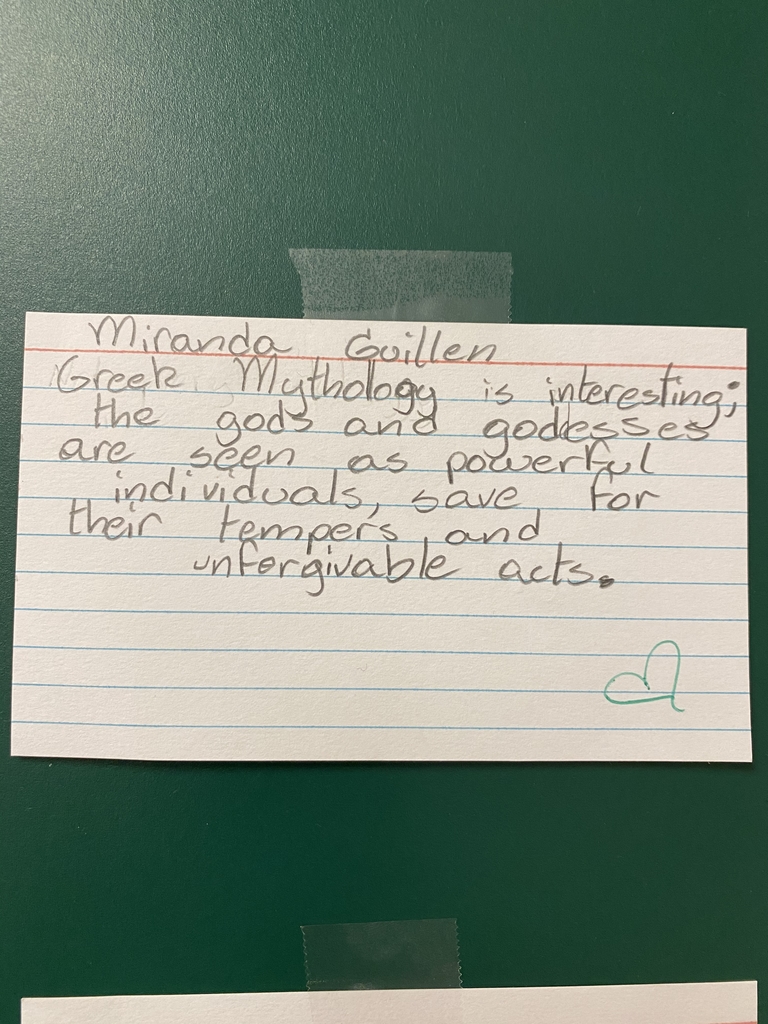 Miranda Guillen
Greek Mythology is interesting;
the gods and godesses
are seen as powerful
individuals, save for
their tempers and
unforgivable acts.